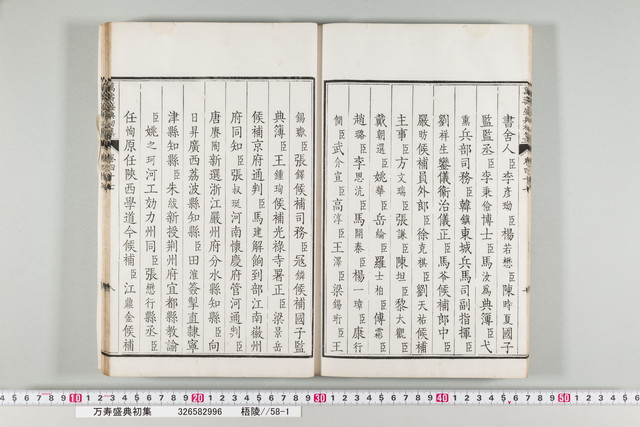 書舍人臣李彥坳臣楊若懋臣陳時夏國子
監監丞臣李秉倫博士臣馬汝爲典簿臣弋
熏兵部司務臣韓鎮東城兵馬司副指揮臣
劉祥生鑾儀衛治儀正臣馬爺候補郎中臣
嚴昉候補員外郎臣徐克祺臣劉天祐候補
主事臣方文瑞臣張謙臣陳坦臣黎大觀臣
戴朝選臣姚華臣岳綸臣羅士柏臣傅霜臣
趙璐臣李思沆臣馬開泰臣楊一璋臣康行
僩臣武介宣臣高淳臣王澤臣梁錫珩臣王
錫臣張鐸候補司務臣寇鱗候補國子監
典簿臣王鍾珣候補光祿寺署正臣梁景岳
候補京府通判臣馬建解餉到部江南徽州
府同知臣張叔珽河南懷慶府管河通判臣
唐賡陶新選浙江嚴州府分水縣知縣臣向
日昇廣西荔波縣知縣臣田淮簽掣直隸寧
津縣知縣臣朱紱新授荆州府宜都縣教諭
臣姚之珂河工効力州同臣張懋行縣丞臣
任恂原任陝西學道今候補臣江鼎金候補
10 20 30 40 50
万寿盛典初集 326582996 梧陵//58-1